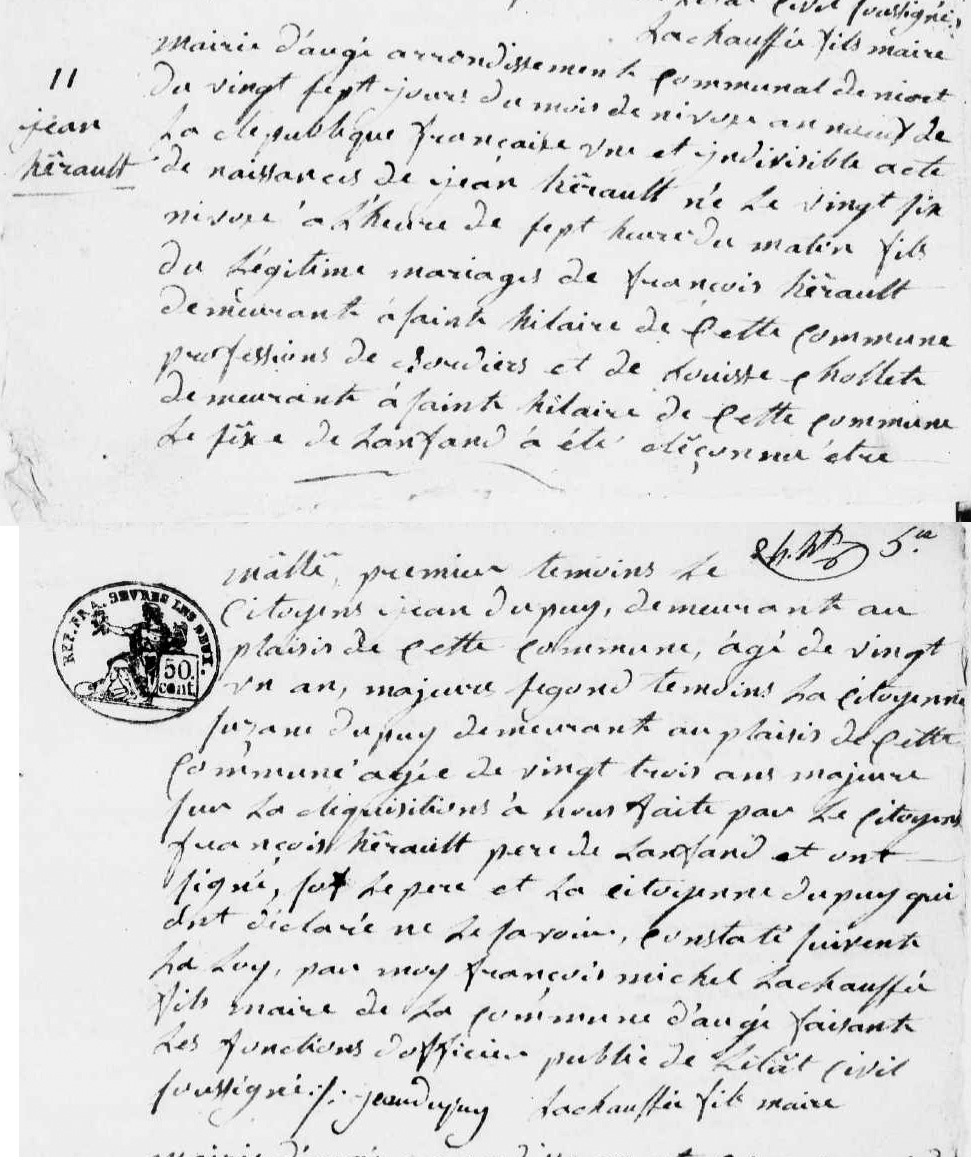 civil soussigné
Lachauffée fils maire
11
jean
hërault
mairie d'augé arrondissement communal de niort
du vingt sept jours du mois de nivose an neuf de
La République française vne et jndivisible acte
de naissances de jean hërault né Le vingt six
nivose à L'heure de sept heure du matin fils
du Légitime mariages de françois hërault
demeurant à saint hilaire de Cette Commune
professions de et de Louisse Chollet
demeurant à saint hilaire de Cette Commune
Le sëxe de Lanfand à été réçonnu être
mâlle, premier temoins Le
5.
REP. FRA. SEVRES LES DEUX.
50.
cent.
Citoyens jean dupuy, demeurant au
plaisis de Cette Commune, âgé de vingt
vn an, majeure segond temoins La Citoyenne
suzane dupuy demeurant au plaisis de Cette
Commune agée de vingt trois ans majeure
sur La réquisitions à nous faite par Le Citoyens
françois hërault pere de Lanfand et ont
signé, sof Le pere et La citoyenne dupuy qui
ont déclaré ne Le savoir, Constaté suivent
La Loy, par moy françois michel Lachauffée
fils maire de La Commune d'augé faisant
Les fonctions dofficier public de L'étât Civil
soussigné ./. jean dupuy Lachauffée fils maire